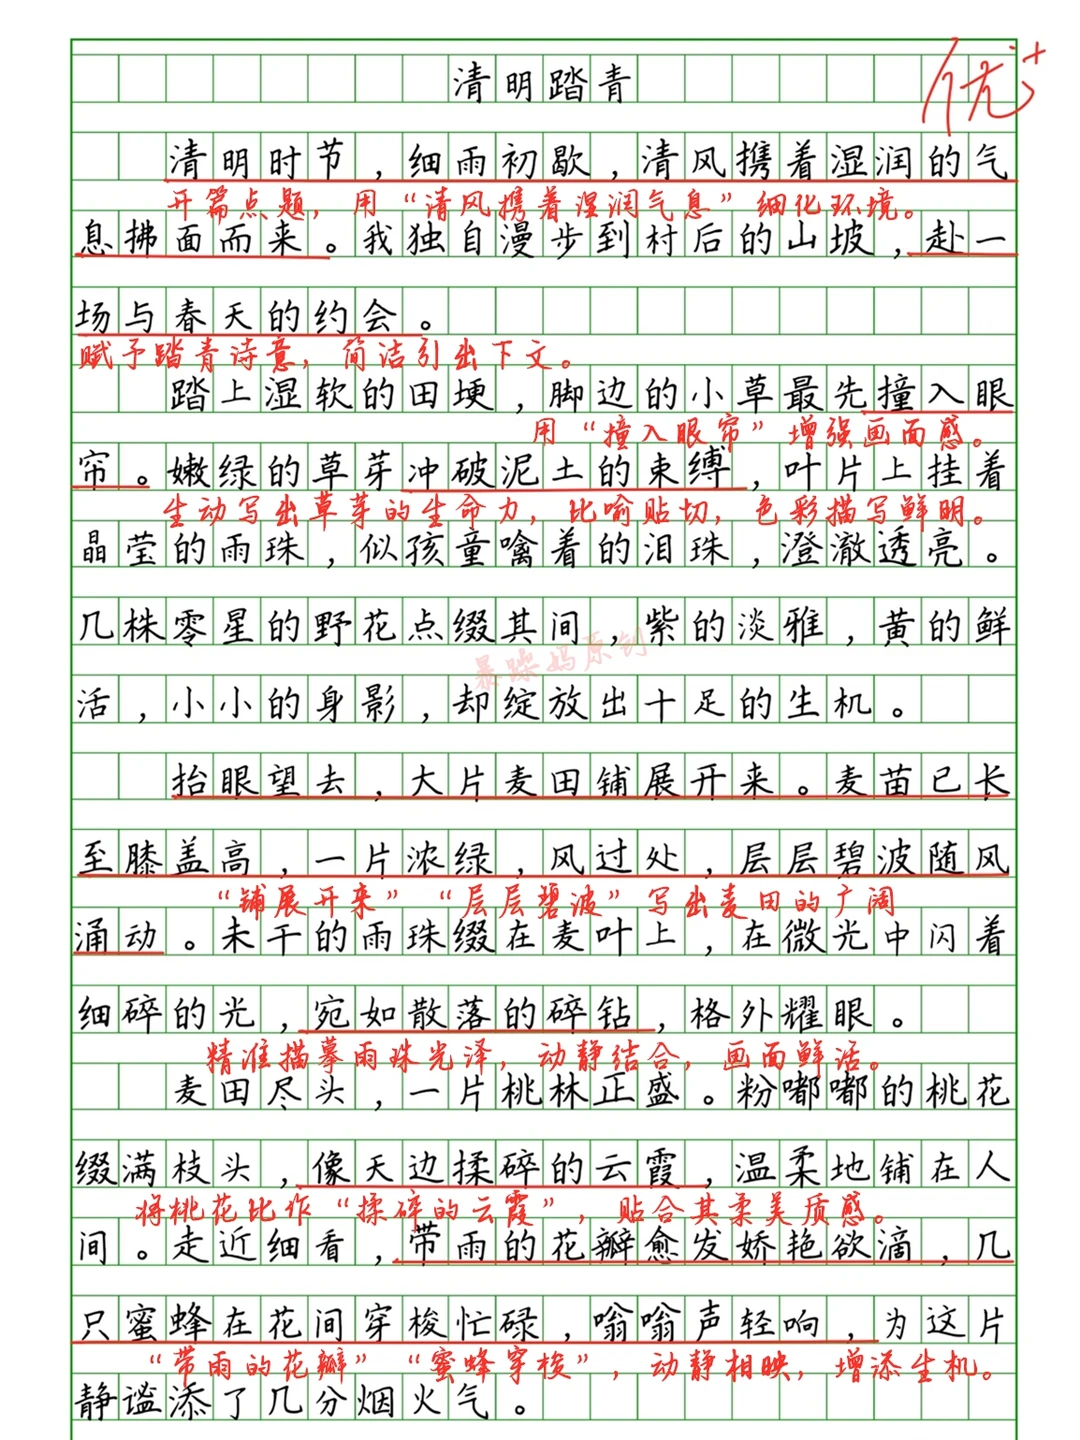 清明踏青
优+
清明时节，细雨初歇，清风携着湿润的气
开篇点题，用“清风携着湿润气息”细化环境。
息拂面而来。我独自漫步到村后的山坡，赴一
场与春天的约会。
赋予踏青诗意，简洁引出下文。
踏上湿软的田埂，脚边的小草最先撞入眼
用“撞入眼帘”增强画面感。
帘。嫩绿的草芽冲破泥土的束缚，叶片上挂着
生动写出草芽的生命力，比喻贴切，色彩描写鲜明。
晶莹的雨珠，似孩童噙着的泪珠，澄澈透亮。
几株零星的野花点缀其间，紫的淡雅，黄的鲜
暴躁妈原创
活，小小的身影，却绽放出十足的生机。
抬眼望去，大片麦田铺展开来。麦苗已长
至膝盖高，一片浓绿，风过处，层层碧波随风
“铺展开来”“层层碧波”写出麦田的广阔
涌动。未干的雨珠缀在麦叶上，在微光中闪着
细碎的光，宛如散落的碎钻，格外耀眼。
精准描摹雨珠光泽，动静结合，画面鲜活。
麦田尽头，一片桃林正盛。粉嘟嘟的桃花
缀满枝头，像天边揉碎的云霞，温柔地铺在人
将桃花比作“揉碎的云霞”，贴合其柔美质感。
间。走近细看，带雨的花瓣愈发娇艳欲滴，几
只蜜蜂在花间穿梭忙碌，嗡嗡声轻响，为这片
“带雨的花瓣”“蜜蜂穿梭”，动静相映，增添生机。
静谧添了几分烟火气。